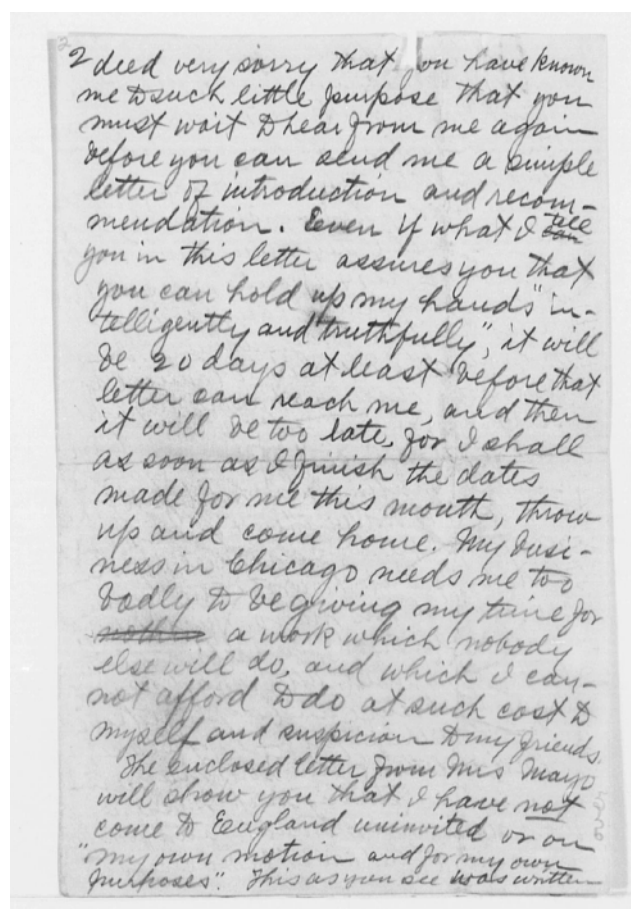 2
2 deed very sorry that you have known
me to such little purpose that you
must wait to hear from me again
before you can send me a simple
letter of introduction and recom-
mendation. Even if what I tell
you in this letter assures you that
you can hold up my hands "in-
telligently and truthfully", it will
be 20 days at least before that
letter can reach me, and then
it will be too late, for I shall
as soon as I finish the dates
made for me this month, throw
up and come home. My busi-
ness in Chicago needs me too
badly to be giving my time for
a work which nobody
else will do, and which I can-
not afford to do at such cost to
myself and suspicion to my friends.
The enclosed letter from Mrs Mayo
will show you that I have not
come to England uninvited or on
"my own motion and for my own
purposes". This as you see was written
over